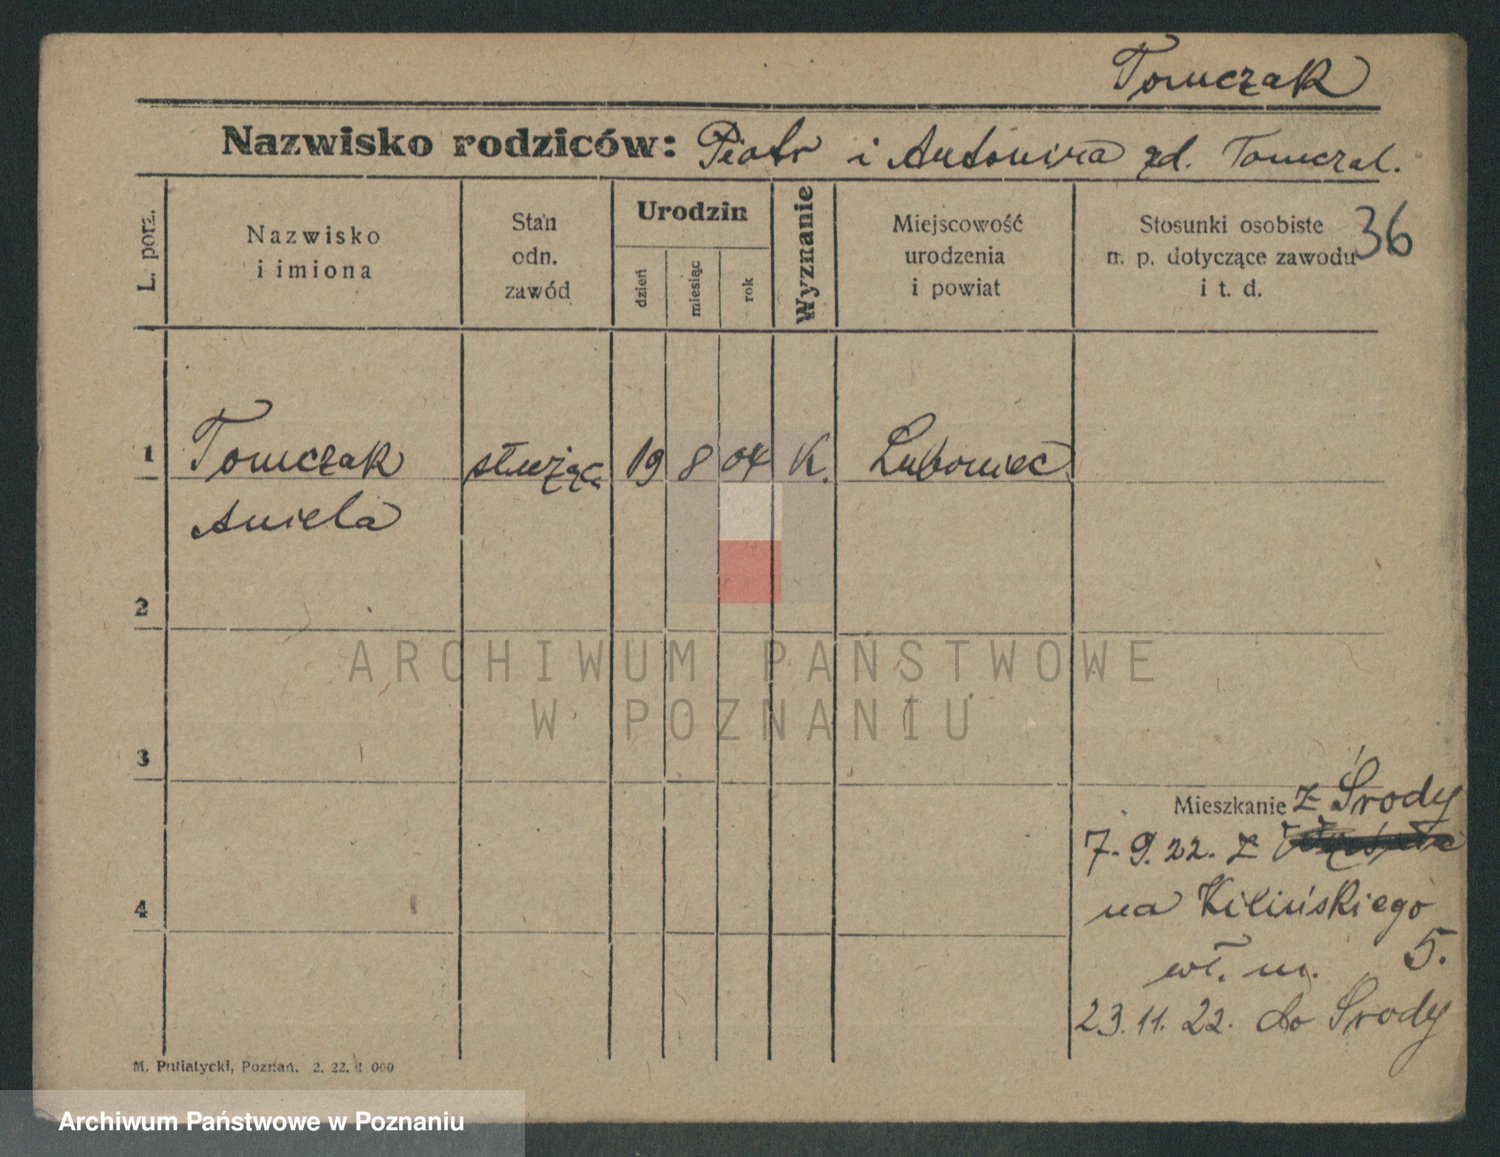 Tomczak
Nazwisko rodziców: Piotr i Antonina zd. Tomczak.
L. porz.
Nazwisko
i imiona
Stan
odn.
zawód
Urodzin
dzień
miesiąc
rok
Wyznanie
Miejscowość
urodzenia
i powiat
Stosunki osobiste
n. p. dotyczące zawodu
i t. d.
36
1 Tomczak służąc. 19 8 04 K. Luboniec
Aniela
2
3
4
Mieszkanie z Środy
7.9.22. z
na Kilińskiego
wł. m. 5.
23.11.22. do Środy
M. Putiatycki, Poznań. 2. 22. 1 000
ARCHIWUM PAŃSTWOWE
W POZNANIU
Archiwum Państwowe w Poznaniu